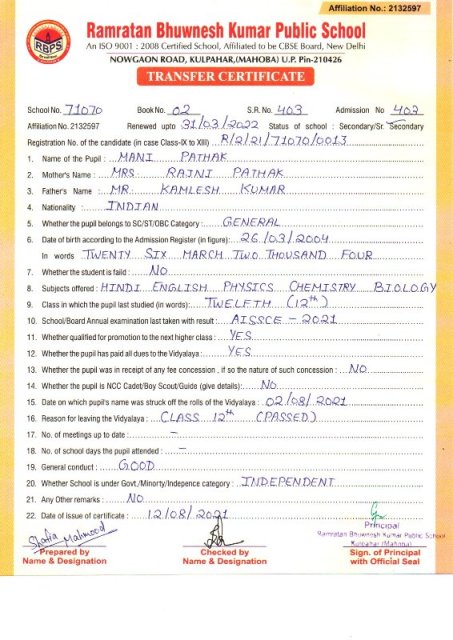 Affiliation No.: 2132597
RBPS
Ramratan Bhuwnesh Kumar Public School
An ISO 9001 : 2008 Certified School, Affiliated to be CBSE Board, New Delhi
NOWGAON ROAD, KULPAHAR,(MAHOBA) U.P. Pin-210426
TRANSFER CERTIFICATE
School No. 71070 Book No. 02 S.R. No. 403 Admission No 403
Affiliation No. 2132597 Renewed upto 31/03/2022 Status of school : Secondary/Sr. Secondary
Registration No. of the candidate (in case Class-IX to XIII) R/2/21/71070/0013
1. Name of the Pupil : MANI PATHAK
2. Mother's Name : MRS. RAJNI PATHAK
3. Father's Name : MR. KAMLESH KUMAR
4. Nationality INDIAN
5. Whether the pupil belongs to SC/ST/OBC Category : GENERAL
6. Date of birth according to the Admission Register (in figure): 26/03/2004
In words TWENTY SIX MARCH TWO THOUSAND FOUR
7. Whether the student is faild : NO
8. Subjects offered : HINDI ENGLISH PHYSICS CHEMISTRY BIOLOGY
9. Class in which the pupil last studied (in words): TWELFTH (12th)
10. School/Board Annual examination last taken with result : AISSCE - 2021
11. Whether qualified for promotion to the next higher class : YES
12. Whether the pupil has paid all dues to the Vidyalaya : YES
13. Whether the pupil was in receipt of any fee concession , if so the nature of such concession : NO
14. Whether the pupil is NCC Cadet/Boy Scout/Guide (give details): NO
15. Date on which pupil's name was struck off the rolls of the Vidyalaya : 02/08/2021
16. Reason for leaving the Vidyalaya : CLASS 12th (PASSED)
17. No. of meetings up to date : -
18. No. of school days the pupil attended : -
19. General conduct : GOOD
20. Whether School is under Govt./Minorty/Indepence category : INDEPENDENT
21. Any Other remarks : NO
22. Date of issue of certificate : 12/08/2021
Shafia Mahmood
Principal
Ramratan Bhuwnesh Kumar Public School
Kulpahar (Mahoba)
Prepared by Checked by Sign. of Principal
Name & Designation Name & Designation with Official Seal